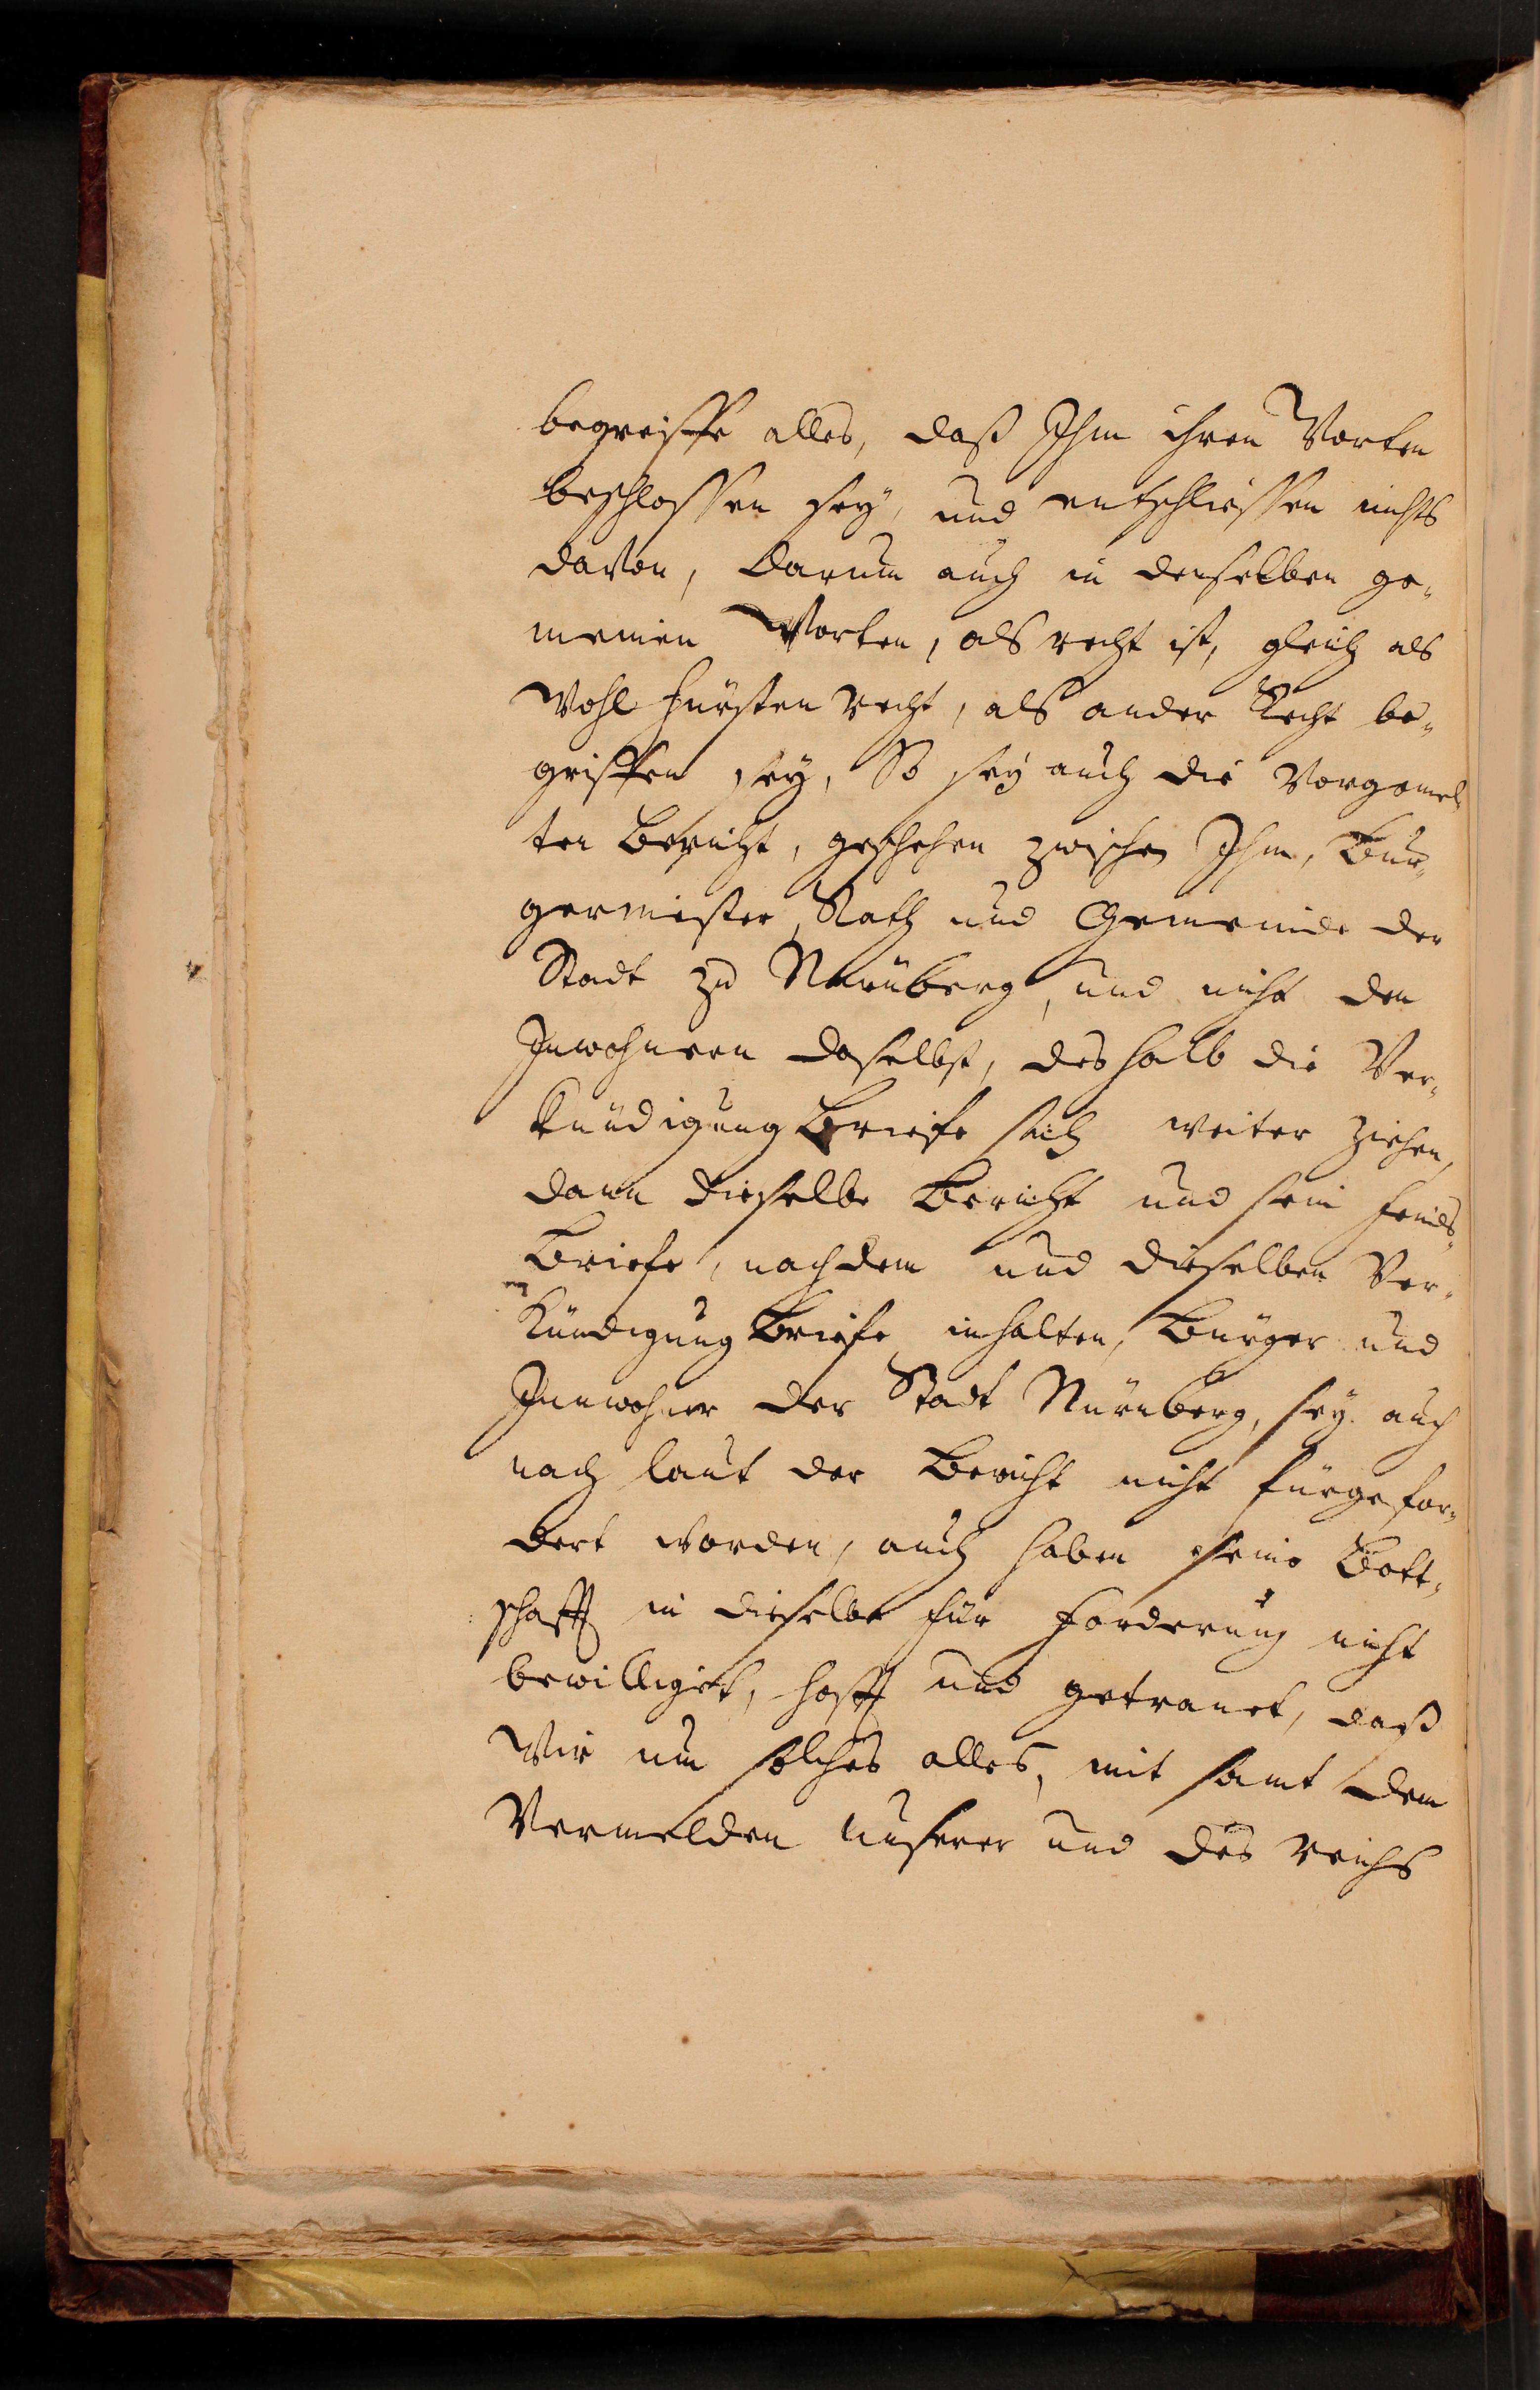 begreiffe alles, daß Ihm ihren Worten
beschlossen sey, und entschliessen nichts
davon, Darum auch in denselben ge„
meinen Worten, als recht ist, gleich als
Wohl fürsten recht, als ander Recht be„
griffen sey, So sey auch die Vorgemel„
ten Bericht, geschehen zwischen Ihm, Bur„
germeister, Rath und Gemeinde der
Stadt zu Nurnberg, und nicht den
Inwohnern daselbst, deshalb die Ver„
kündigung Briefe sich weiter ziehen,
dann dieselbe Bericht und sein feinds„
Briefe, nachdem und dieselben Ver„
kündigung Briefe inhalten, Bürger und
Innwohner der Stadt Nürnberg, sey auch
nach laut der Bericht nicht fürgefor„
dert worden, auch haben seine Bott„
schafft in dieselbe für forderung nicht
bewilliget, hofft und getrauet, daß
Wir nun solches alles, mit samt dem
Vermelden Unserer und des reichs